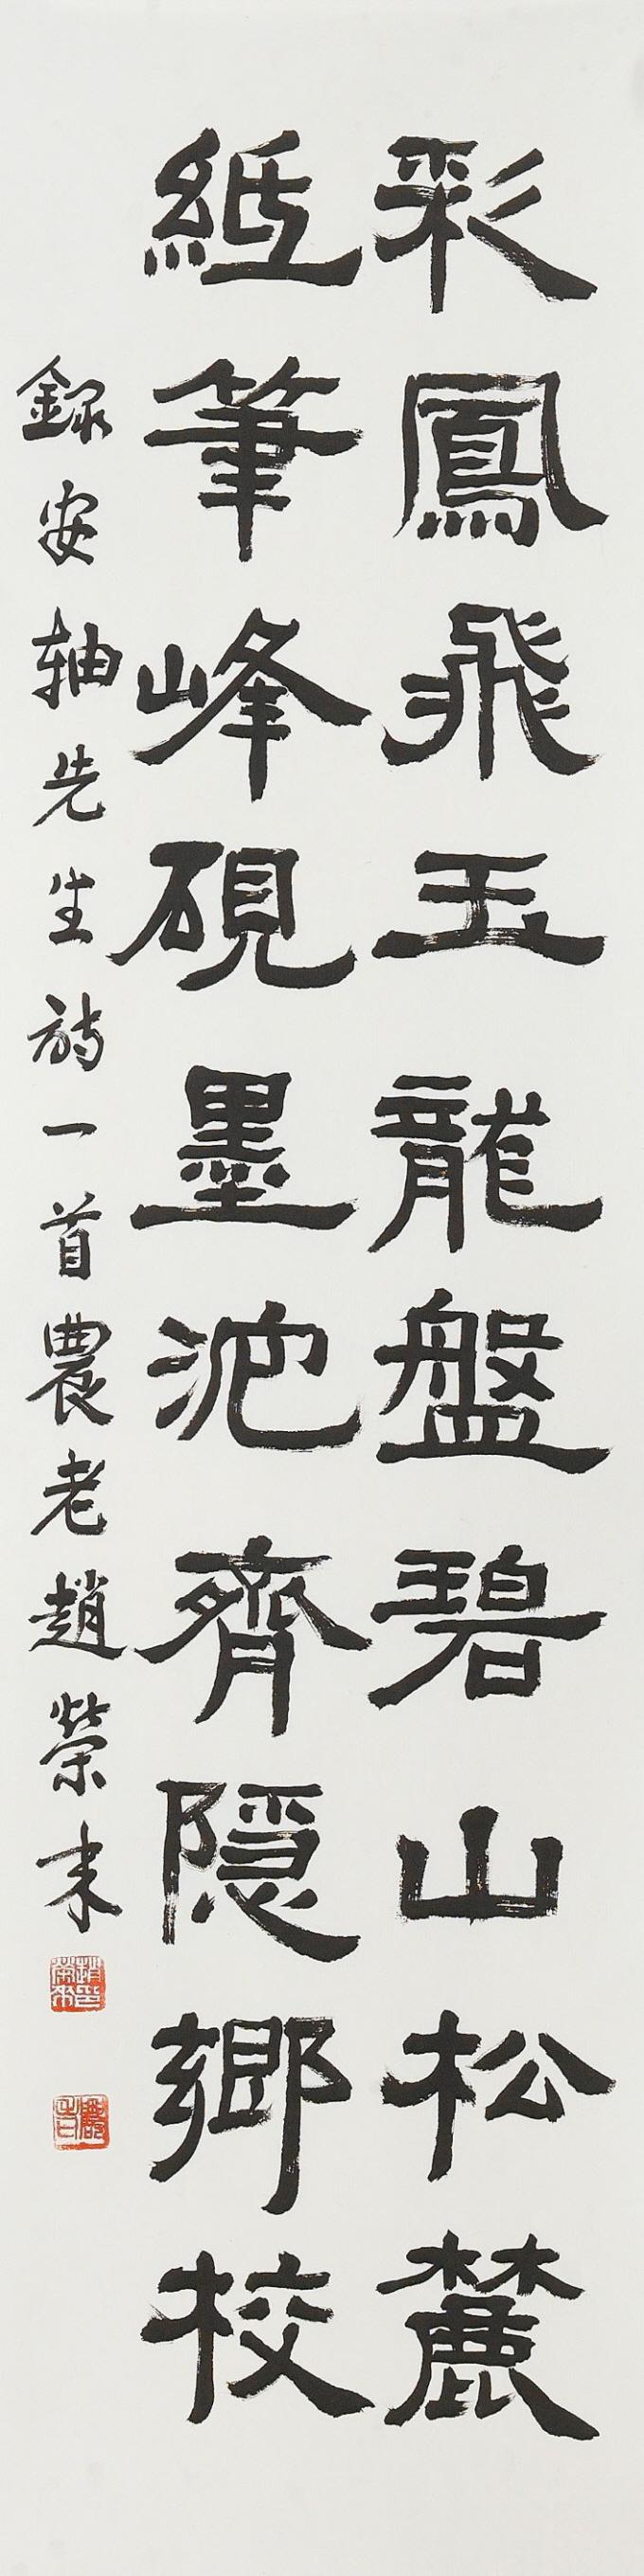 彩鳳飛玉龍盤碧山松麓
紙筆峰硯墨池齊隱鄉校
錄安軸先生詩一首農老趙榮來